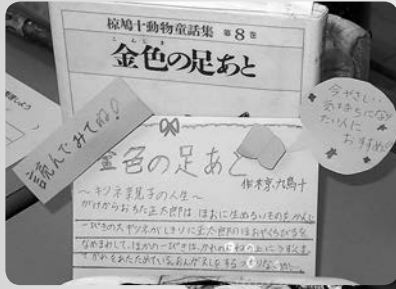 椋鳩十動物童話集 第8巻
こんじき
金色の足あと
読んでみてね!
今やさしい
気持ちになり
たい人に
おすすめ
金色の足あと
作 椋鳩十
〜キツネ親子の人生〜
がけからおちた正太郎は、ほおに生ぬるいものをかんじ
一ぴきの大ギツネがしきりに正太郎のほおやくちびるを
なめまわして、ほかの一ぴきは、かれのむねの上にうずくま